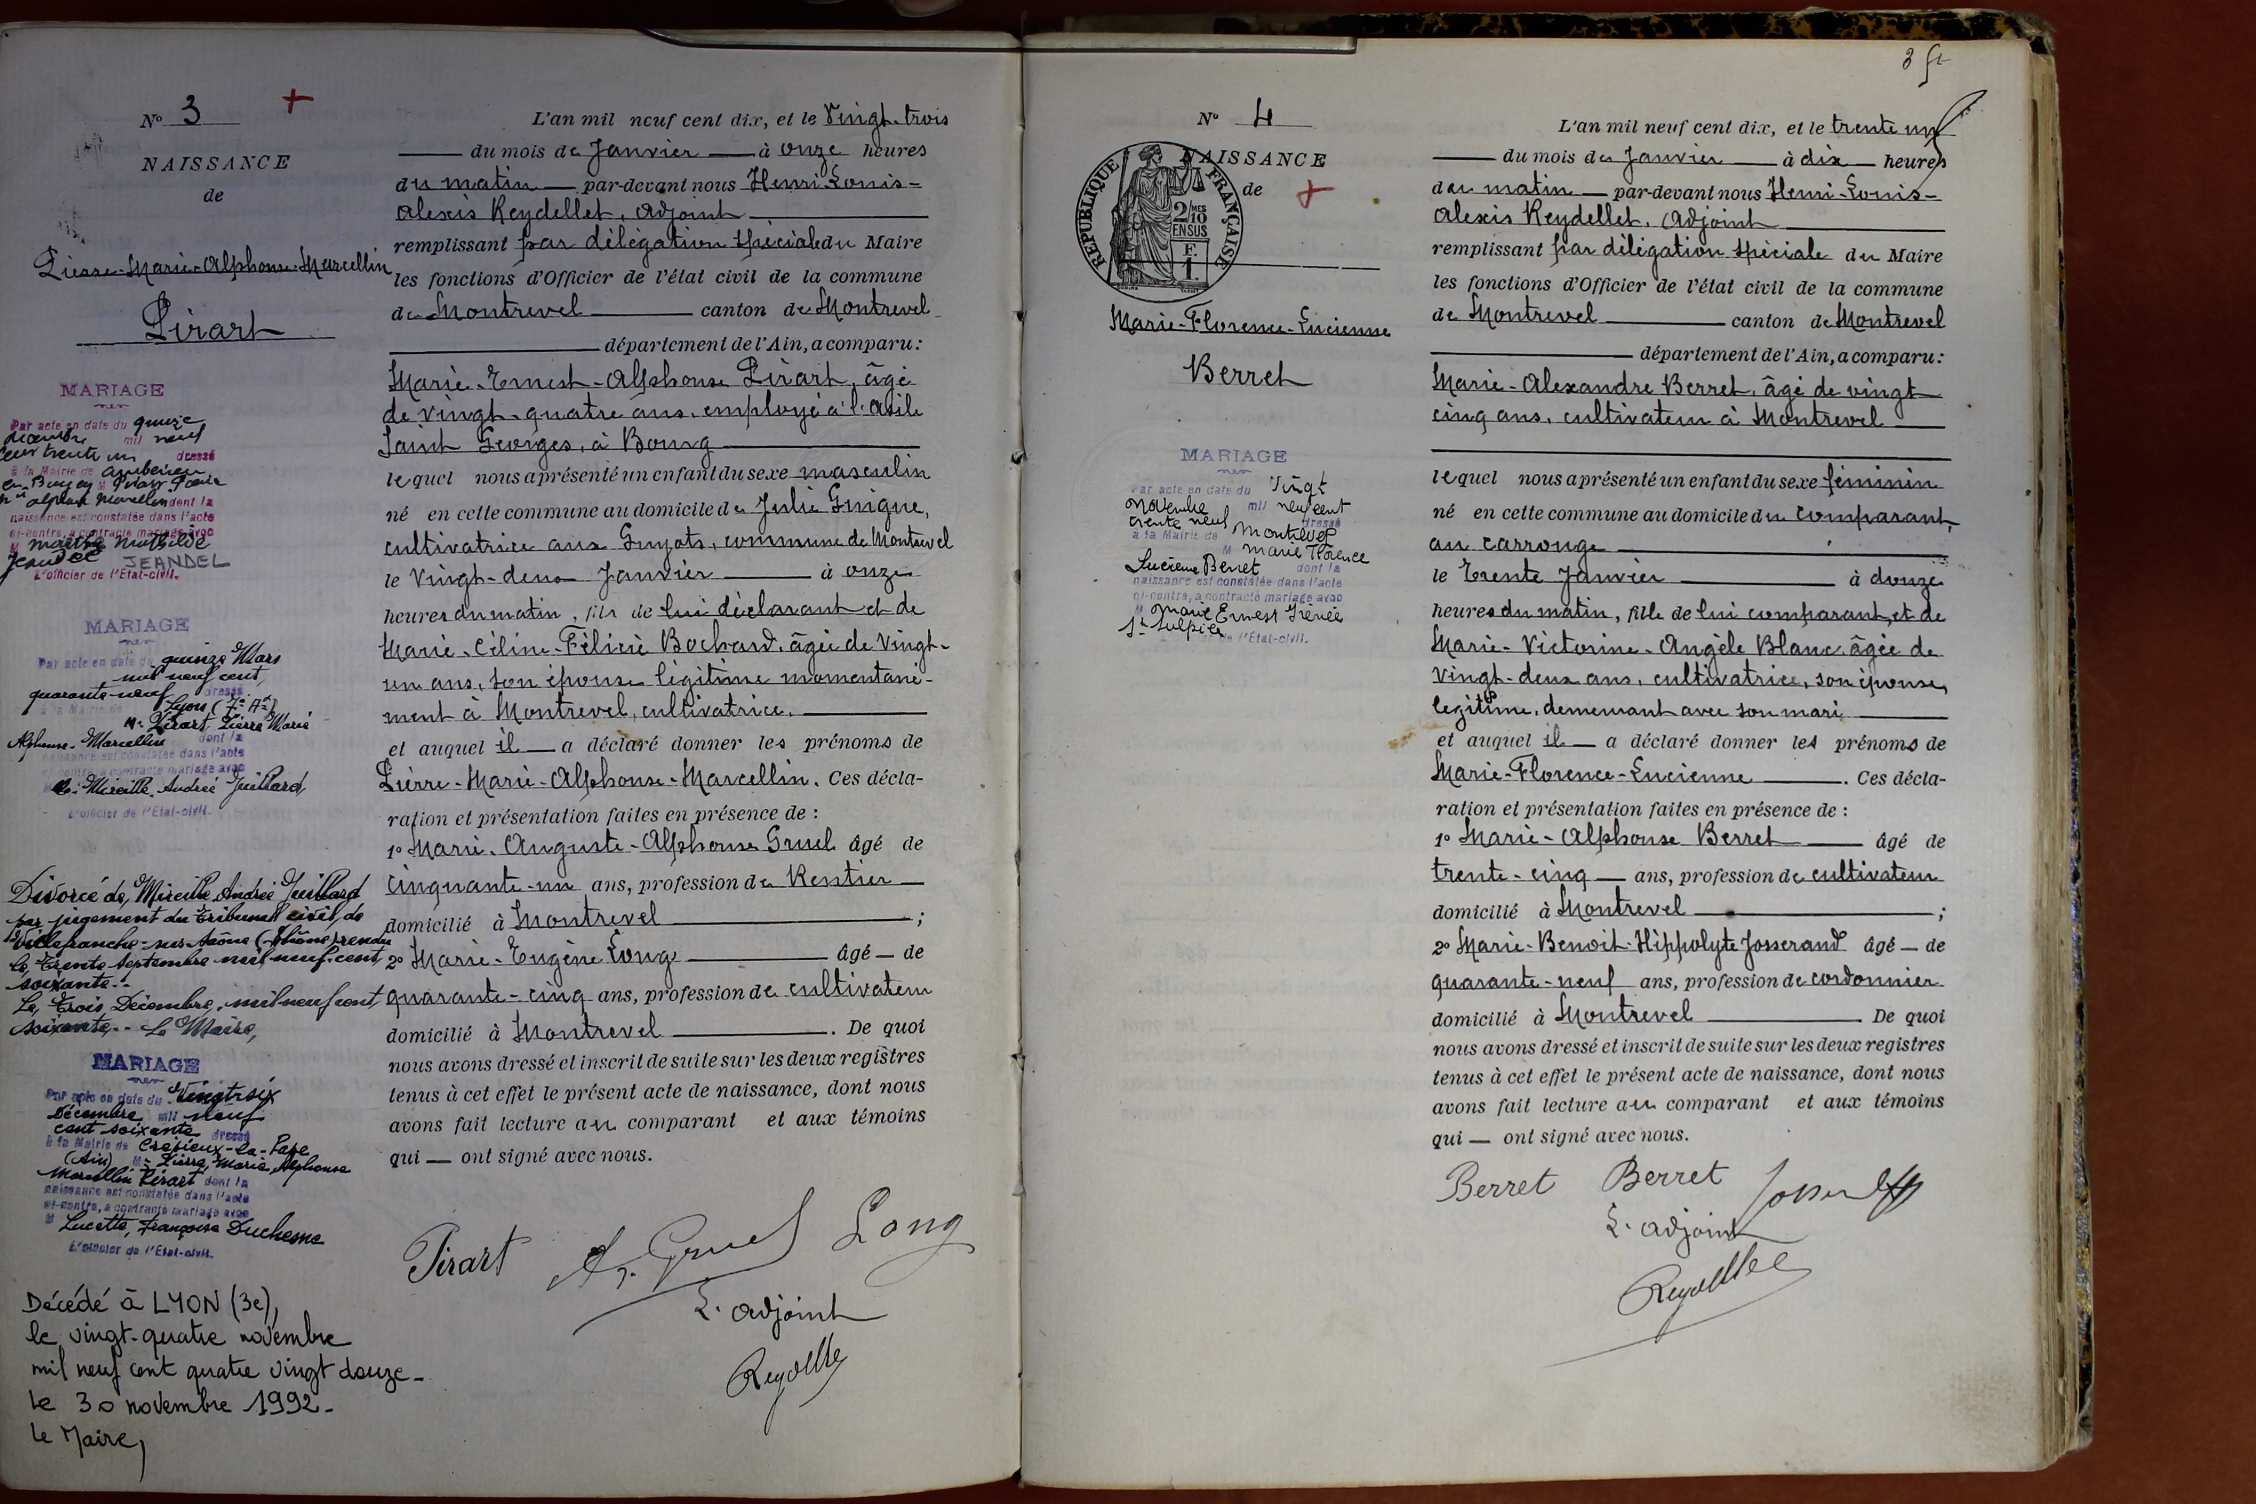 N° 3 +
NAISSANCE
de
Pierre-Marie-Alphonse-Marcellin
Pirart
MARIAGE
Par acte en date du quinze
décembre mil neuf
cent trente un dressé
à la Mairie de Ambérieu
en Bugey M Pirart Pierre
Mie Alphonse Marcellin dont la
naissance est constatée dans l'acte
ci-contre, a contracté mariage avec
M Marthe Mathilde
Jeandel JEANDEL
L'officier de l'Etat-civil.
MARIAGE
Par acte en date du quinze Mars
mil neuf cent
quarante-neuf dressé
à la Mairie de Lyon
Mr Pirart Pierre Marie
Alphonse-Marcellin dont la
naissance est constatée dans l'acte
ci-contre, a contracté mariage avec
Mireille Andrée Juillard
L'officier de l'Etat-civil.
Divorcé de Mireille Andrée Juillard
par jugement du tribunal civil de
Villefranche-sur-Saône (Rhône) rendu
le, trente septembre mil neuf cent
soixante.-
Le, trois Décembre, mil neuf cent
soixante.- Le Maire,
MARIAGE
Par acte en date du Vingt six
Décembre mil neuf
cent soixante dressé
à la Mairie de Crépieux-la-Pape
(Ain) M. Pierre, Marie, Alphonse
Marcellin Pirart dont la
naissance est constatée dans l'acte
ci-contre, a contracté mariage avec
M Lucette, Françoise Duchesne
L'officier de l'Etat-civil.
Décédé à LYON (3e),
le vingt-quatre novembre
mil neuf cent quatre vingt douze-
le 30 novembre 1992-
le Maire,
L'an mil neuf cent dix, et le Vingt-trois
du mois de Janvier à onze heures
du matin par-devant nous Henri Louis-
Alexis Reydellet, Adjoint
remplissant par délégation spéciale du Maire
les fonctions d'Officier de l'état civil de la commune
de Montrevel canton de Montrevel
département de l'Ain, a comparu:
Marie-Ernest-Alphonse Pirart, âgé
de vingt-quatre ans, employé à l'asile
Saint Georges, à Bourg
lequel nous a présenté un enfant du sexe masculin
né en cette commune au domicile de Julie Guigue,
cultivatrice aux Guyots, commune de Montrevel
le Vingt-deux Janvier à onze
heures du matin, fils de lui déclarant et de
Marie-Céline-Félicie Bochard, âgée de Vingt-
un ans, son épouse légitime momentané-
ment à Montrevel, cultivatrice.
et auquel il a déclaré donner les prénoms de
Pierre-Marie-Alphonse-Marcellin. Ces décla-
ration et présentation faites en présence de :
1° Marie-Auguste-Alphonse Gruel âgé de
cinquante-un ans, profession de Rentier
domicilié à Montrevel ;
2° Marie-Eugène Long âgé de
quarante-cinq ans, profession de cultivateur
domicilié à Montrevel . De quoi
nous avons dressé et inscrit de suite sur les deux registres
tenus à cet effet le présent acte de naissance, dont nous
avons fait lecture au comparant et aux témoins
qui ont signé avec nous.
Pirart A. Gruel Long
L. adjoint
Reydellet
3
N° 4
NAISSANCE
de +
RÉPUBLIQUE FRANÇAISE
2/10 MES
EN SUS
F.
1.
Marie-Florence-Lucienne
Berret
MARIAGE
Par acte en date du Vingt
Novembre mil neuf cent
trente neuf dressé
à la Mairie de Montrevel
M Marie Florence
Lucienne Berret dont la
naissance est constatée dans l'acte
ci-contre, a contracté mariage avec
M Marie Ernest Irénée
St Sulpice
de l'Etat-civil.
L'an mil neuf cent dix, et le trente un
du mois de Janvier à dix heures
du matin par-devant nous Henri-Louis-
Alexis Reydellet, Adjoint
remplissant par délégation spéciale du Maire
les fonctions d'Officier de l'état civil de la commune
de Montrevel canton de Montrevel
département de l'Ain, a comparu:
Marie-Alexandre Berret, âgé de vingt
cinq ans, cultivateur à Montrevel
lequel nous a présenté un enfant du sexe féminin
né en cette commune au domicile du comparant,
au carrouge
le Trente Janvier à douze
heures du matin, fille de lui comparant, et de
Marie-Victorine-Angèle Blanc, âgée de
vingt-deux ans, cultivatrice, son épouse
légitime, demeurant avec son mari
et auquel il a déclaré donner les prénoms de
Marie-Florence-Lucienne . Ces décla-
ration et présentation faites en présence de :
1° Marie-Alphonse Berret âgé de
trente-cinq ans, profession de cultivateur
domicilié à Montrevel ;
2° Marie-Benoit-Hippolyte Josserand âgé de
quarante-neuf ans, profession de cordonnier
domicilié à Montrevel . De quoi
nous avons dressé et inscrit de suite sur les deux registres
tenus à cet effet le présent acte de naissance, dont nous
avons fait lecture au comparant et aux témoins
qui ont signé avec nous.
Berret Berret Josserand
L. adjoint
Reydellet